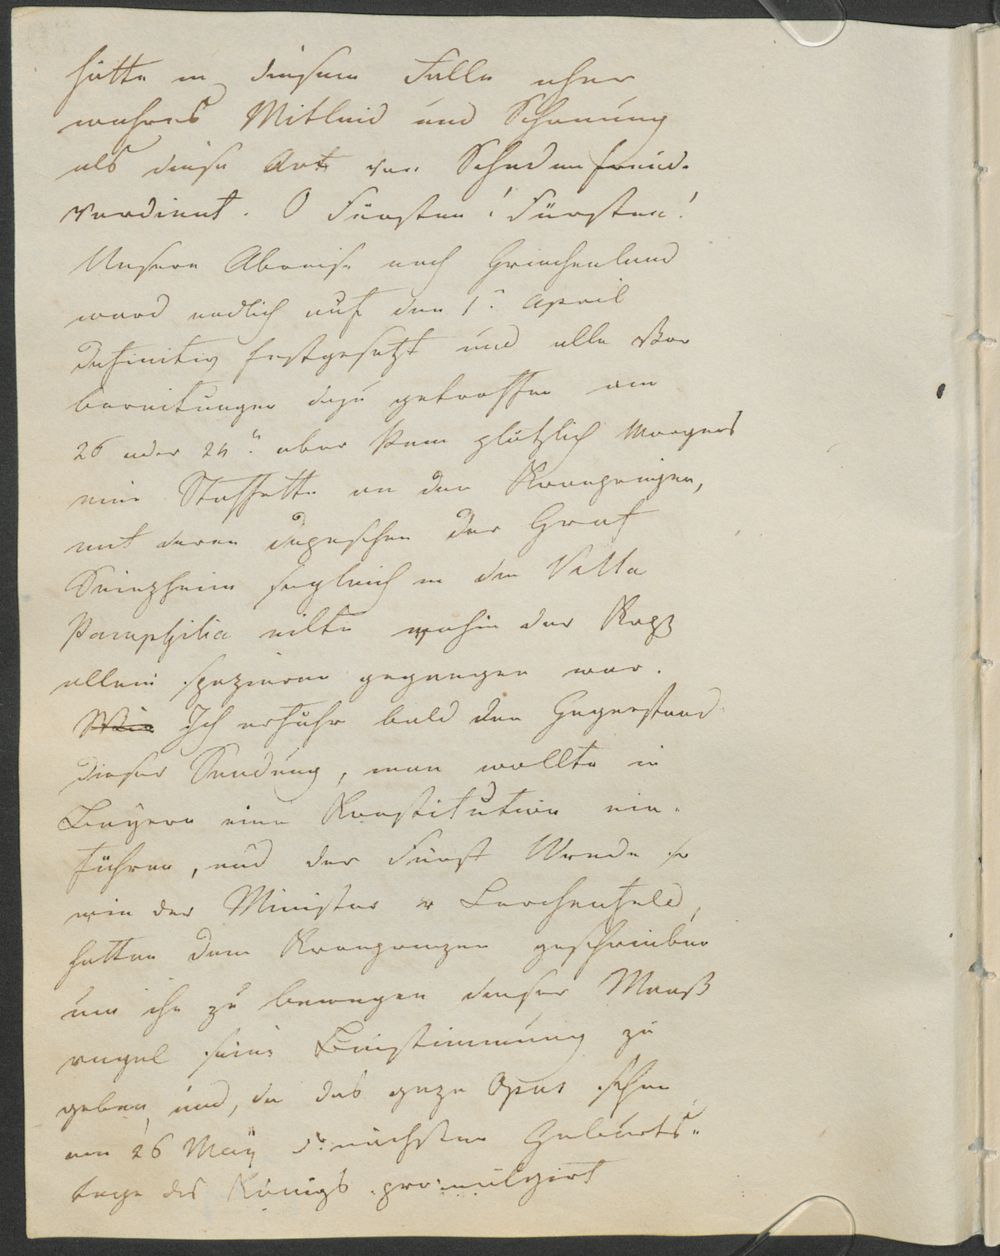 hätte in diesem Falle eher
wahres Mitleid und Schonung
als diese Art von Schadenfreude
verdient. O Fürsten! Fürsten!
Unsere Abreise nach Griechenland
ward endlich auf den 1n April
definitiv festgesetzt und alle Vor
bereitungen dazu getroffen am
26 oder 24n aber kam plötzlich Morgens
eine Staffette an den Kronprinzen,
mit deren Depeschen der Graf
Seinsheim sogleich in die Villa
Pamphilia eilte wohin der Kpz
allein spazieren gegangen war.
Ich erfuhr bald den Gegenstand
dieser Sendung, man wollte in
Bayern eine Konstitution ein-
führen, und der Fürst Wrede so
wie der Minister v Lerchenfeld,
hatten dem Kronprinzen geschrieben
um ihn zu bewegen dieser Maaß
regel seine Beistimmung zu
geben, und, da das ganze Opus schon
am 26 May d: nächsten Geburts-
tage des Königs promulgirt